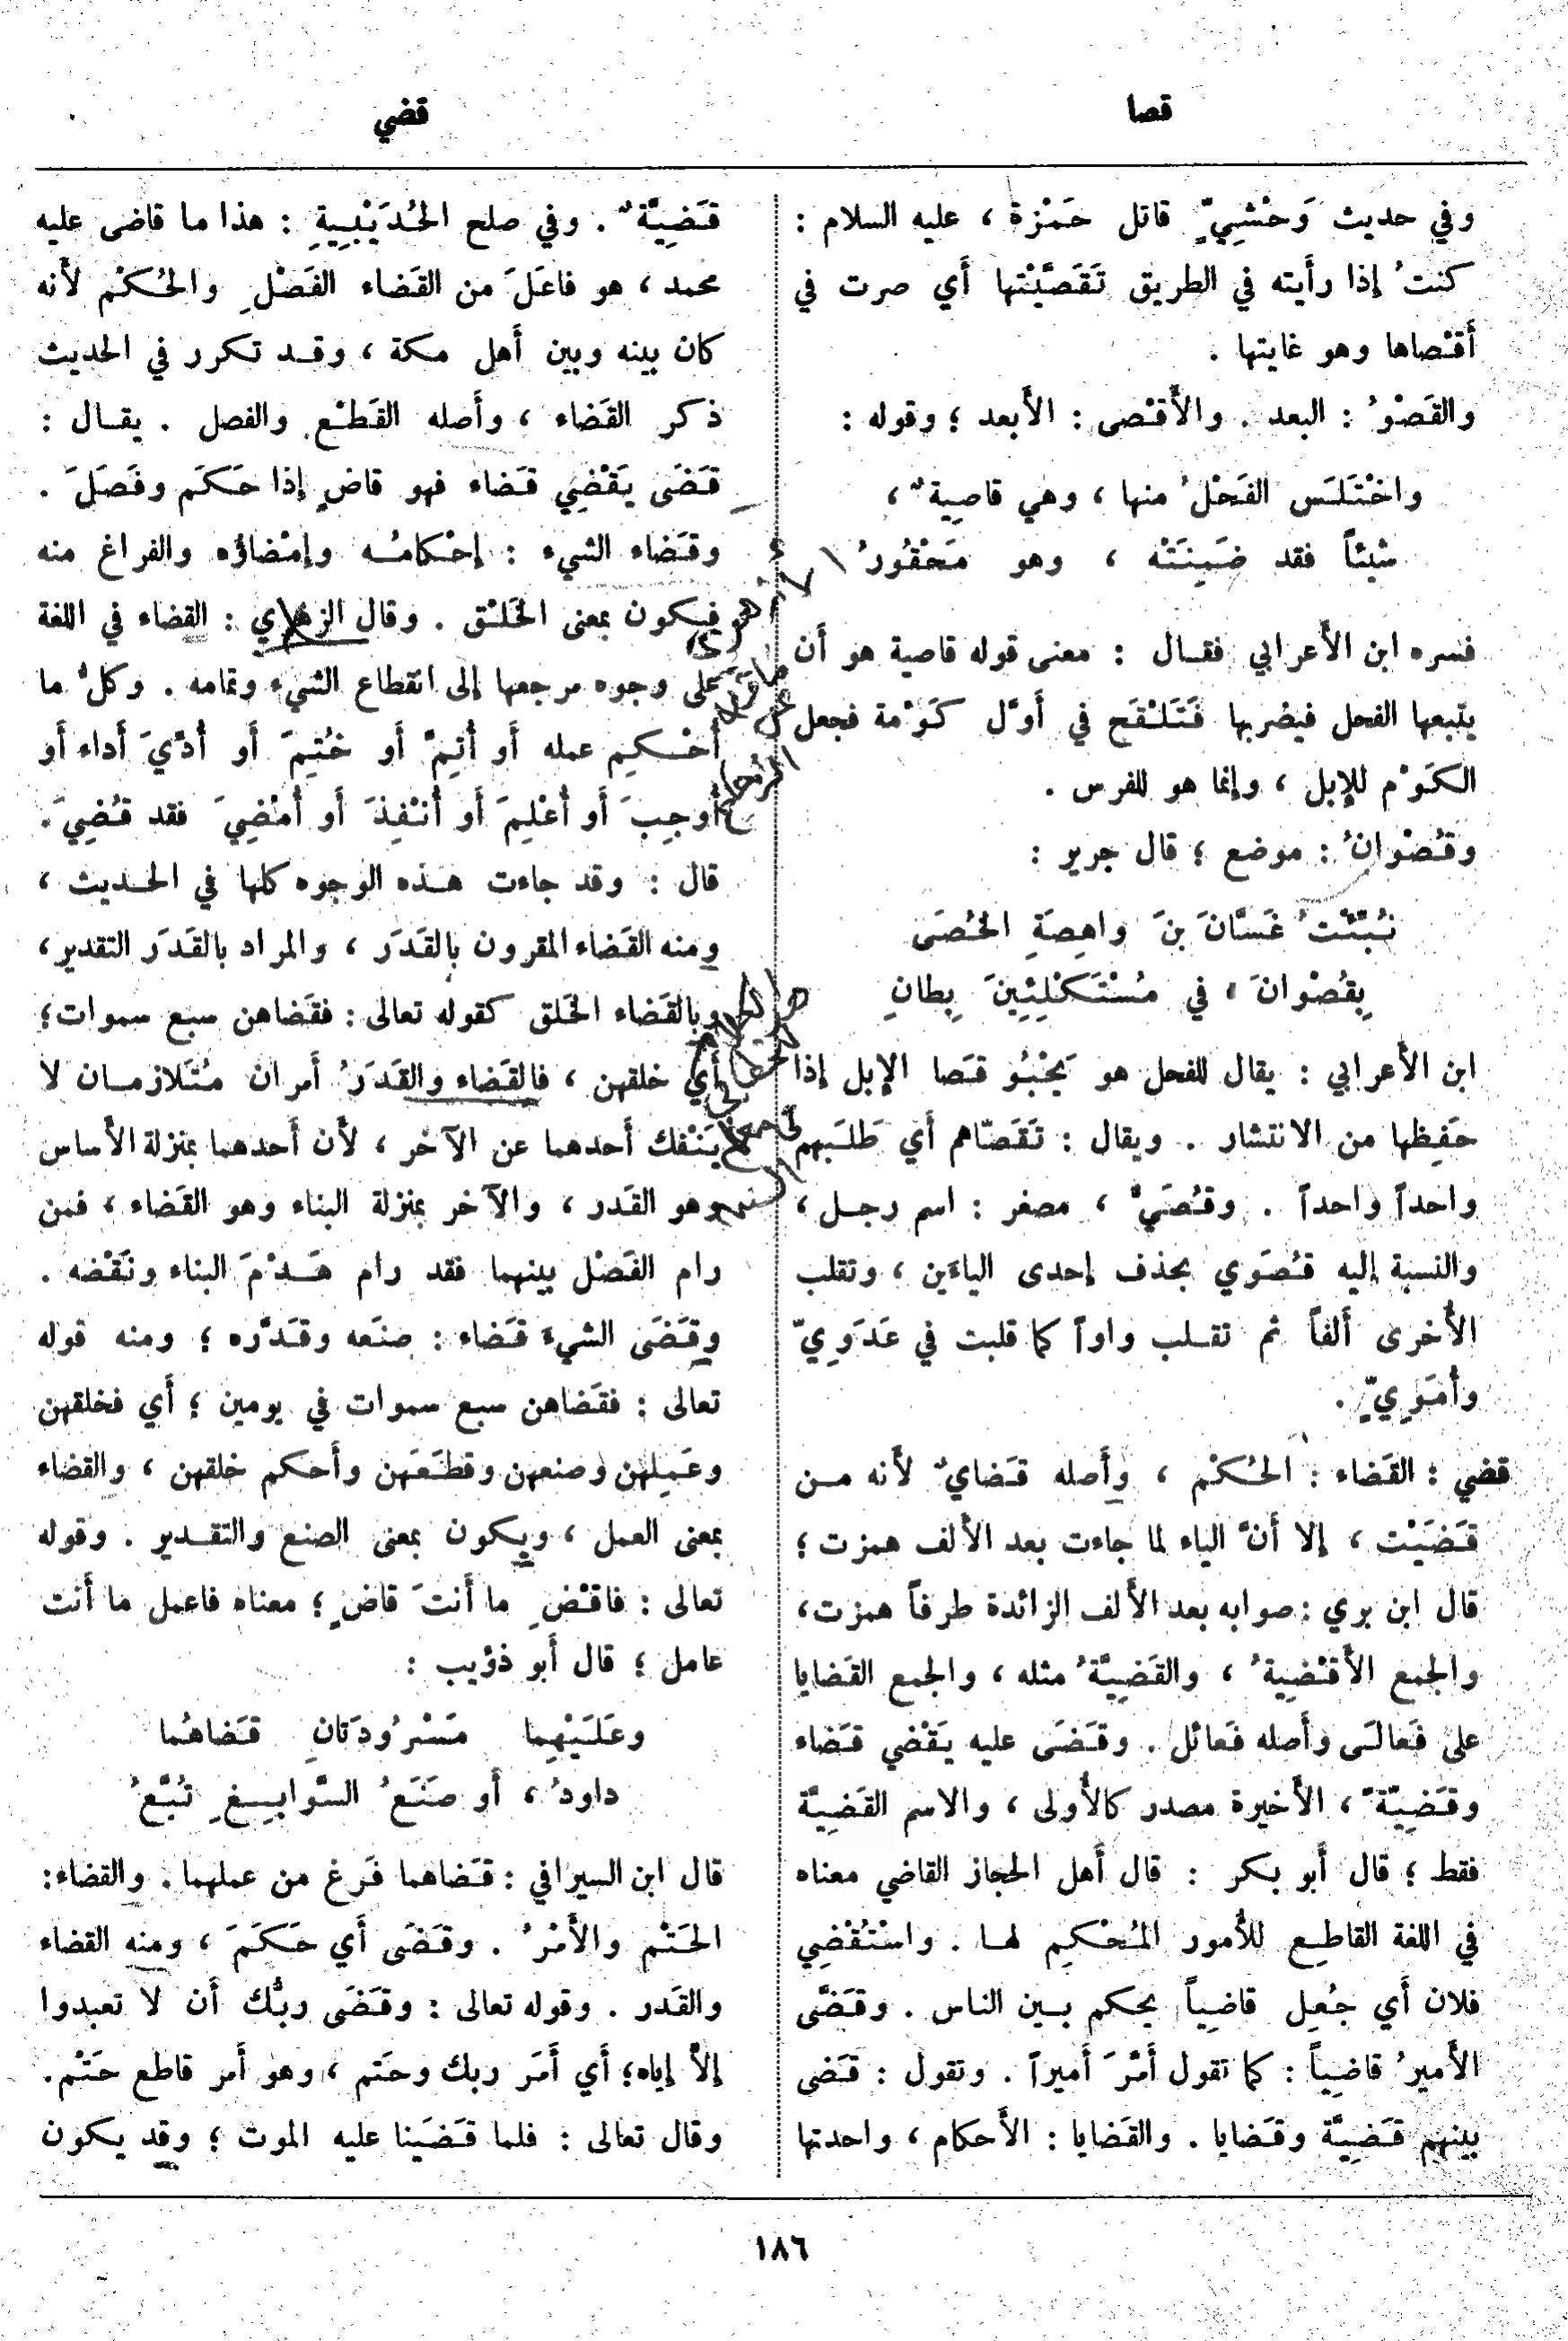 قصا
قضي
وفي حديث وَحْشِيٍّ قاتل حَمْزة ، عليه السلام :
كنتُ إذا رأَيته في الطريق تَقَصَّيْتها أَي صرت في
أَقْصاها وهو غايتها .
والقَصْوُ : البعد . والأَقْصى : الأَبعد ؛ وقوله :
واخْتَلَسَ الفَحْلُ منها ، وهي قاصِيةٌ ،
شيْئاً فقد ضَمِنَتْه ، وهو مَحْقُورُ
فسره ابن الأَعرابي فقال : معنى قوله قاصية هو أَن
يتبعها الفحل فيضربها فَتَلْقَح في أَوَّل كَوْمة فجعل
الكَوْم للإِبل ، وإنما هو للفرس .
وقُصْوانُ : موضع ؛ قال جرير :
نُبِّئْتُ غَسَّانَ بنَ واهِصَةِ الخُصَى
بِقُصْوانَ ، في مُسْتَكْلِئِينَ بِطانِ
ابن الأَعرابي : يقال للفحل هو يَحْبُو قَصا الإبل إذا
حَفِظها من الانتشار . ويقال : تَقَصّاهم أَي طَلَبهم
واحداً واحداً . وقُصَيٌّ ، مصغر : اسم رجل ،
والنسبة إليه قُصَوِي بحذف إحدى الياءَين ، وتقلب
الأُخرى أَلفاً ثم تقلب واواً كما قلبت في عَدَوِيّ
وأُمَوِيٍّ .
قضي : القَضاء : الحُكْم ، وأَصله قَضايٌ لأَنه من
قَضَيْت ، إلا أَنَّ الياء لما جاءت بعد الأَلف همزت ؛
قال ابن بري : صوابه بعد الأَلف الزائدة طرفاً همزت ،
والجمع الأَقْضِيةُ ، والقَضِيَّةُ مثله ، والجمع القَضايا
على فَعالَى وأَصله فَعائل . وقَضَى عليه يَقْضي قَضاء
وقَضِيَّةً ، الأخيرة مصدر كالأُولى ، والاسم القَضِيَّة
فقط ؛ قال أَبو بكر : قال أَهل الحجاز القاضي معناه
في اللغة القاطِع للأُمور المُحْكِم لها . واسْتُقْضِي
فلان أَي جُعِل قاضِياً يحكم بين الناس . وقَضَّى
الأَميرُ قاضِياً : كما تقول أَمَّرَ أَميراً . وتقول : قَضى
بينهم قَضِيَّة وقَضايا . والقَضايا : الأَحكام ، واحدتها
قَضِيَّةٌ . وفي صلح الحُدَيْبِيةِ : هذا ما قاضى عليه
محمد ، هو فاعَلَ من القَضاء الفَصْلِ والحُكْم لأَنه
كان بينه وبين أَهل مكة ، وقد تكرر في الحديث
ذكر القَضاء ، وأَصله القَطْع والفصل . يقال :
قَضَى يَقْضِي قَضاء فهو قاضٍ إذا حَكَم وفَصَلَ .
وقَضاء الشيء : إحْكامُه وإمْضاؤه والفراغ منه
فيكون بمعنى الخَلْق . وقال الزهري : القضاء في اللغة
على وجوه مرجعها إلى انقطاع الشيء وتمامه . وكلُّ ما
أُحْكِم عمله أَو أُتِمَّ أَو خُتِمَ أَو أُدِّيَ أَداء أَو
أُوجِبَ أَو أُعْلِمَ أَو أُنْفِذَ أَو أُمْضِيَ فقد قُضِيَ .
قال : وقد جاءت هذه الوجوه كلها في الحديث ،
ومنه القَضاء المقرون بالقَدَر ، والمراد بالقَدَر التقدير ،
وبالقَضاء الخَلق كقوله تعالى : فقَضاهن سبع سموات ؛
أَي خلقهن ، فالقَضاء والقَدَرُ أَمران مُتَلازمان لا
يَنْفك أَحدهما عن الآخر ، لأَن أَحدهما بمنزلة الأَساس
وهو القَدر ، والآخر بمنزلة البناء وهو القَضاء ، فمن
رام الفَصْل بينهما فقد رام هَدْمَ البناء ونَقْضه .
وقَضَى الشيءَ قَضاء : صنَعه وقَدَّره ؛ ومنه قوله
تعالى : فقَضاهن سبع سموات في يومين ؛ أَي فخلقهن
وعَمِلهن وصنعهن وقطَعَهن وأَحكم خلقهن ، والقضاء
بمعنى العمل ، ويكون بمعنى الصنع والتقدير . وقوله
تعالى : فاقْضِ ما أَنتَ قاضٍ ؛ معناه فاعمل ما أَنت
عامل ؛ قال أَبو ذؤيب :
وعَلَيْهِما مَسْرُودَتانِ قَضاهُما
داودُ ، أَو صَنَعُ السَّوابِغِ تُبَّعُ
قال ابن السيرافي : قَضاهما فَرغ من عملهما . والقضاء :
الحَتْم والأَمْرُ . وقَضَى أَي حَكَمَ ، ومنه القضاء
والقَدر . وقوله تعالى : وقَضَى ربُّك أَن لا تعبدوا
إلاَّ إياه ؛ أَي أَمَر ربك وحَتم ، وهو أَمر قاطع حَتْم .
وقال تعالى : فلما قَضَينا عليه الموت ؛ وقد يكون
١٨٦